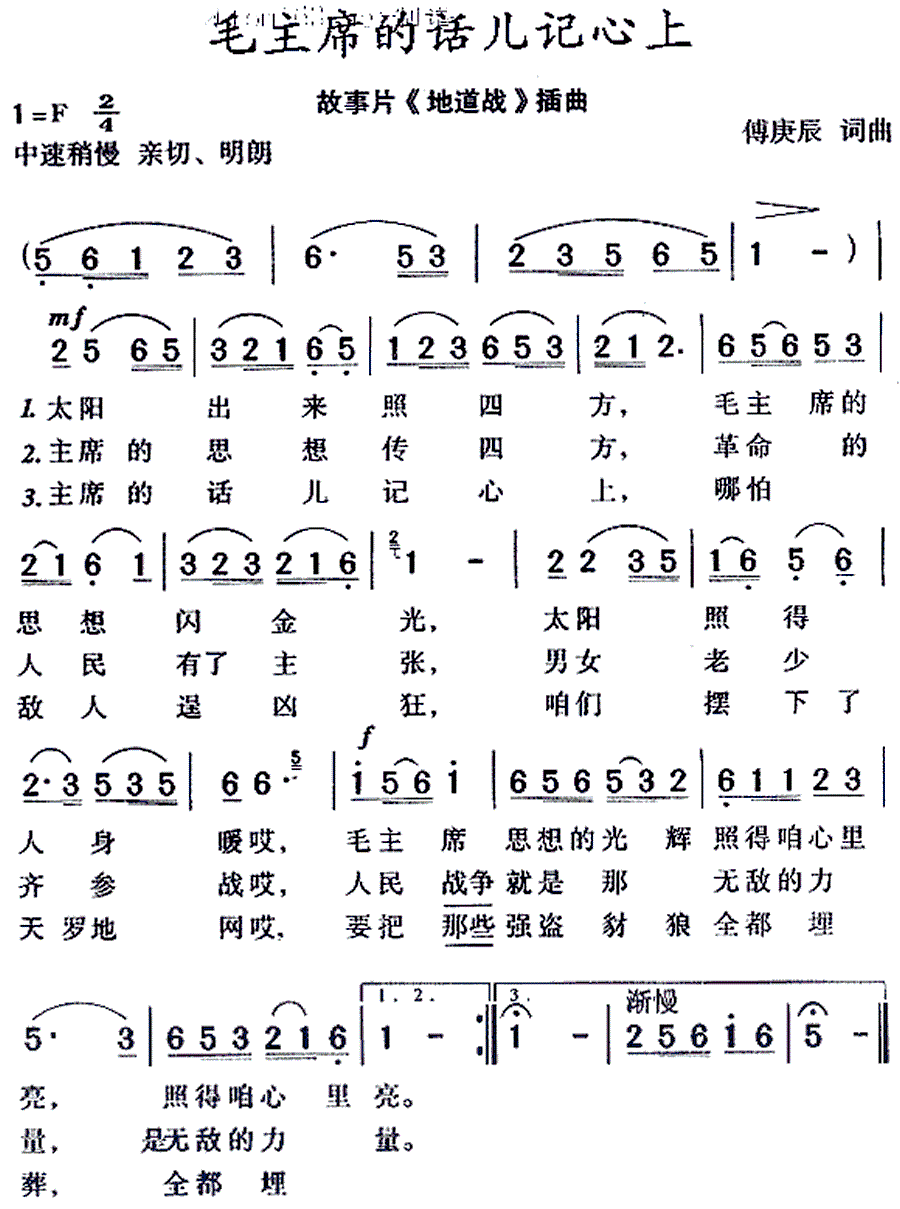 毛主席的话儿记心上
故事片《地道战》插曲
1=F 2/4
傅庚辰 词曲
中速稍慢 亲切、明朗
(5 6 1 2 3 | 6· 5 3 | 2 3 5 6 5 | 1 - ) |
mf
2 5 6 5 | 3 2 1 6 5 | 1 2 3 6 5 3 | 2 1 2. | 6 5 6 5 3
1.太阳 出 来 照 四 方, 毛主 席的
2.主席的 思 想 传 四 方, 革命 的
3.主席的 话 儿 记 心 上, 哪怕
2 1 6 1 | 3 2 3 2 1 6 | 2 1 - | 2 2 3 5 | 1 6 5 6 |
思 想 闪 金 光, 太阳 照 得
人 民 有了 主 张, 男女 老 少
敌 人 逞 凶 狂, 咱们 摆 下了
f
2· 3 5 3 5 | 6 6· 5 | 1 5 6 1 | 6 5 6 5 3 2 | 6 1 1 2 3 |
人 身 暖哎, 毛主 席 思想的光 辉 照得咱心里
齐 参 战哎, 人民 战争就是 那 无敌的力
天 罗地 网哎, 要把 那些强盗 豺 狼 全都 埋
1. 2. 3. 渐慢
5· 3 | 6 5 3 2 1 6 | 1 - :‖ 1 - | 2 5 6 1 6 | 5 - ‖
亮, 照得咱心 里 亮。
量, 是无敌的力 量。
葬, 全都 埋